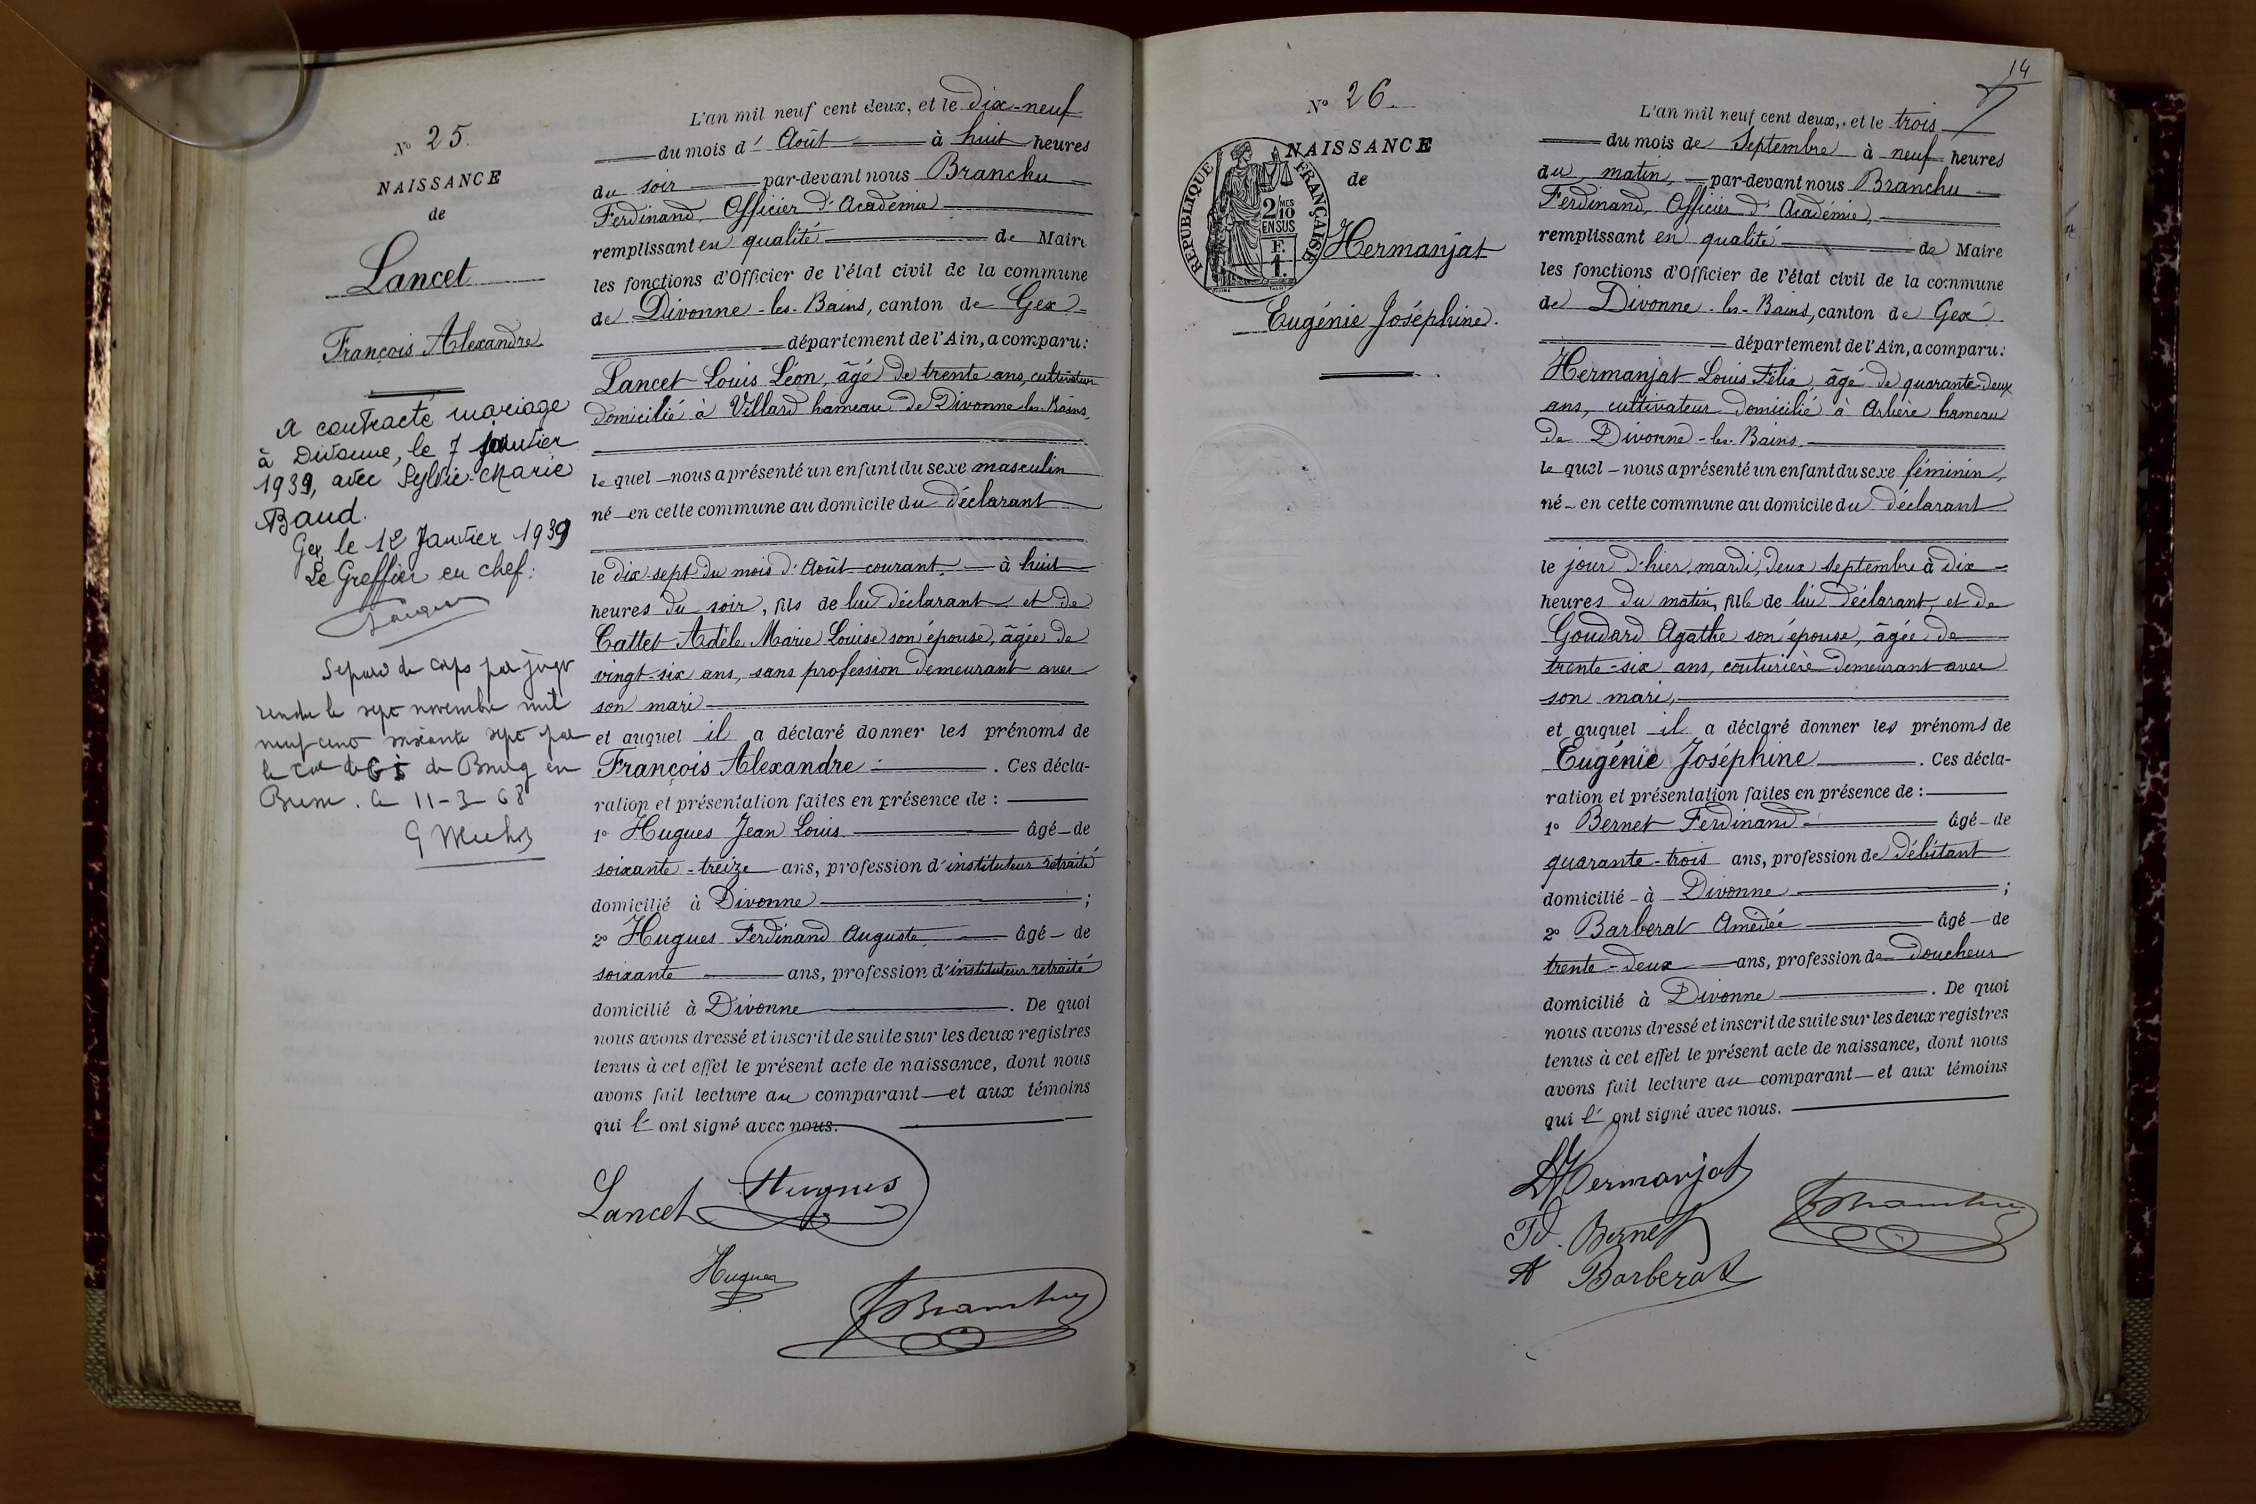 N° 25.
NAISSANCE
de
Lancet
François Alexandre
A contracté mariage
à Divonne, le 7 janvier
1939, avec Sylvie-Marie
Baud.
Gex, le 12 Janvier 1939
Le Greffier en chef:
Séparé de corps par jugt
rendu le sept novembre mil
neuf cent soixante sept par
le de G I de Bourg en
Bresse. Le 11-3-68
L'an mil neuf cent deux, et le dix-neuf
du mois d' Août à huit heures
du soir par-devant nous Branchu
Ferdinand, Officier d'Académie
remplissant en qualité de Maire
les fonctions d'Officier de l'état civil de la commune
de Divonne-les-Bains, canton de Gex
département de l'Ain, a comparu:
Lancet Louis Léon, âgé de trente ans, cultivateur
domicilié à Villard hameau de Divonne-les-Bains,
le quel nous a présenté un enfant du sexe masculin
né en cette commune au domicile du déclarant
le dix-sept du mois d'Août courant, à huit
heures du soir, fils de lui déclarant et de
Cattet Adèle Marie Louise son épouse, âgée de
vingt-six ans, sans profession demeurant avec
son mari
et auquel il a déclaré donner les prénoms de
François Alexandre. Ces décla-
ration et présentation faites en présence de :
1° Hugues Jean Louis âgé de
soixante-treize ans, profession d'instituteur retraité
domicilié à Divonne ;
2° Hugues Ferdinand Auguste, âgé de
soixante ans, profession d'instituteur retraité
domicilié à Divonne. De quoi
nous avons dressé et inscrit de suite sur les deux registres
tenus à cet effet le présent acte de naissance, dont nous
avons fait lecture au comparant et aux témoins
qui l' ont signé avec nous.
Lancet Hugues
Hugues
Branchu
14
N° 26.
NAISSANCE
de
RÉPUBLIQUE FRANÇAISE
2/10 MES
EN SUS
F.
1.
Hermanjat
Eugénie Joséphine.
L'an mil neuf cent deux, et le trois
du mois de Septembre à neuf heures
du matin, par-devant nous Branchu
Ferdinand, Officier d'Académie,
remplissant en qualité de Maire
les fonctions d'Officier de l'état civil de la commune
de Divonne-les-Bains, canton de Gex
département de l'Ain, a comparu:
Hermanjat Louis Félix, âgé de quarante-deux
ans, cultivateur domicilié à Arbère hameau
de Divonne-les-Bains
le quel nous a présenté un enfant du sexe féminin,
né en cette commune au domicile du déclarant
le jour d'hier, mardi, deux Septembre à dix
heures du matin, fille de lui déclarant, et de
Goudard Agathe son épouse, âgée de
trente-six ans, couturière demeurant avec
son mari,
et auquel il a déclaré donner les prénoms de
Eugénie Joséphine. Ces décla-
ration et présentation faites en présence de :
1° Bernet Ferdinand âgé de
quarante-trois ans, profession de débitant
domicilié à Divonne ;
2° Barberat Amédée âgé de
trente-deux ans, profession de doucheur
domicilié à Divonne. De quoi
nous avons dressé et inscrit de suite sur les deux registres
tenus à cet effet le présent acte de naissance, dont nous
avons fait lecture au comparant et aux témoins
qui l' ont signé avec nous.
L Hermanjat
Fd. Bernet
A Barberat
Branchu